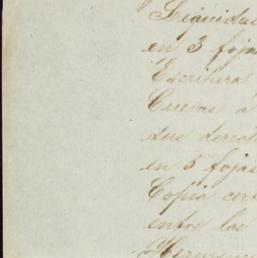 Liquidac
en 3 fojas
Escritura
Cuevas a
sus derech
en 5 fojas
Copia cer
entre los